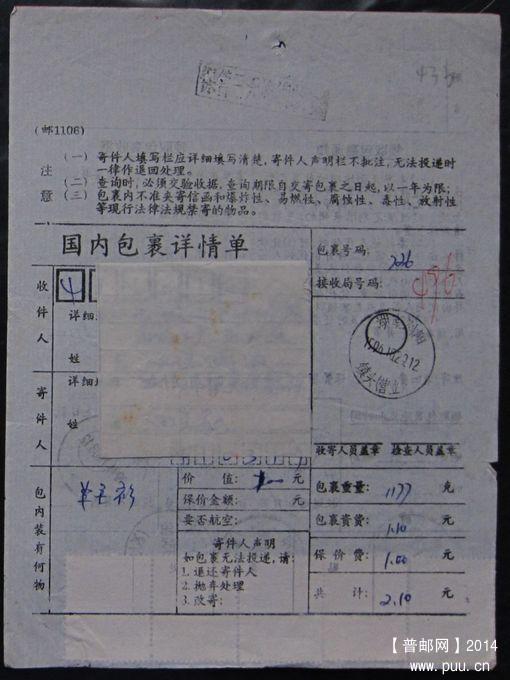 (邮1106)
注意
(一) 寄件人填写栏应详细填写清楚，寄件人声明栏不批注，无法投递时
一律作退回处理。
(二) 查询时，必须交验收据，查询期限自交寄包裹之日起，以一年为限；
(三) 包裹内不准夹寄信函和爆炸性、易燃性、腐蚀性、毒性、放射性
等现行法律法规禁寄的物品。
国内包裹详情单
包裹号码：226
接收局号码：
收件人
详细
姓
寄件人
详细
收寄人员盖章 检查人员盖章
包内装有何物
价 值： 元
保价金额： 元
要否航空：
寄件人声明
如包裹无法投递，请：
1. 退还寄件人
2. 抛弃处理
3. 改寄：
包裹重量： 1177 克
包裹资费： 1.10 元
保 价 费： 1.00 元
共 计： 2.10 元
【普邮网】2014
www.puu.cn